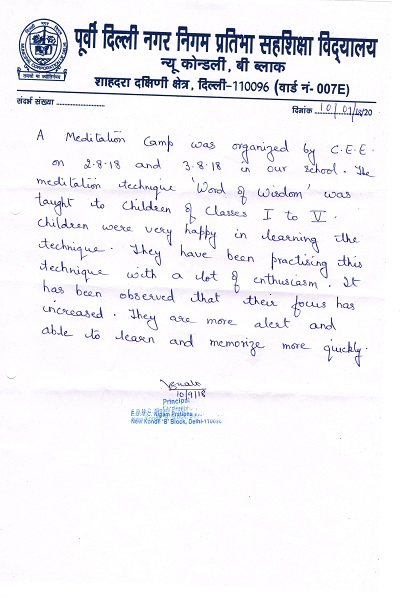 पूर्वी दिल्ली नगर निगम प्रतिभा सहशिक्षा विद्यालय
न्यू कोन्डली, बी ब्लाक
शाहदरा दक्षिणी क्षेत्र, दिल्ली-110096 (वार्ड नं- 007E)
संदर्भ संख्या
दिनांक
A Meditation Camp was organized by C.E.E.
on 2.8.18 and 3.8.18 in our school. The
meditation technique 'Word of Wisdom' was
taught to Children of Classes I to V.
Children were very happy in learning the
technique. They have been practising this
technique with a lot of enthusiasm. It
has been observed that their focus has
increased. They are more alert and
able to learn and memorize more quickly.
10/9/18
Principal
New Kondli 'B' Block, Delhi-110096